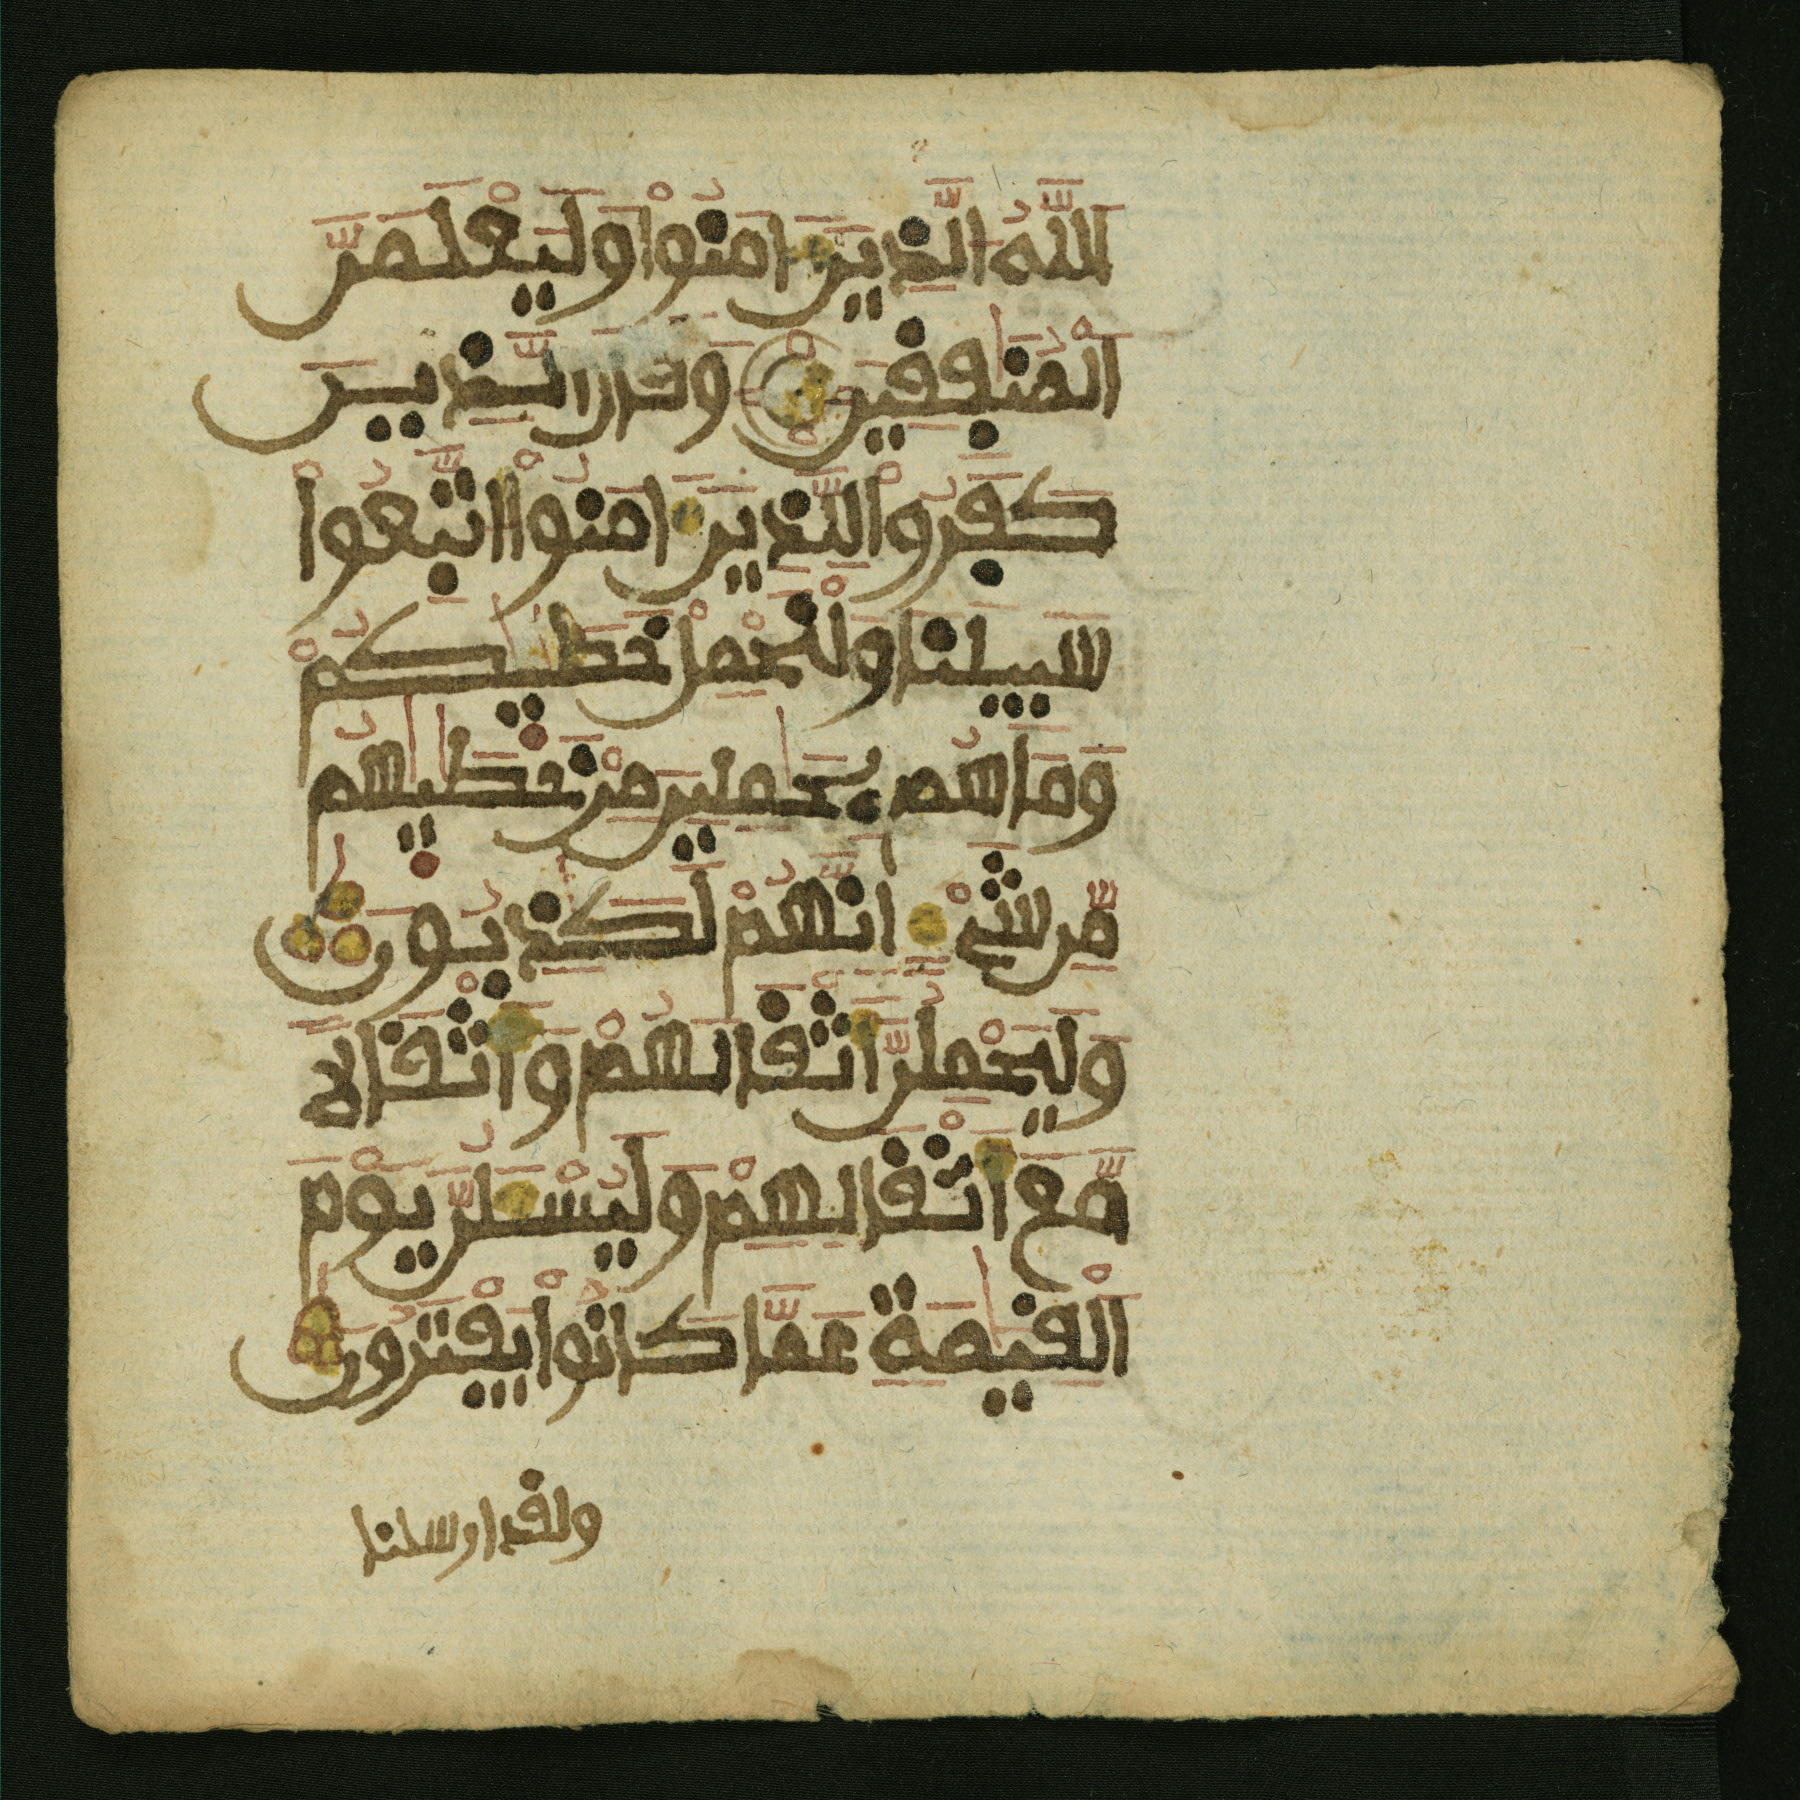 اللَّهُ الَّذِينَ ءَامَنُوا وَلَيَعْلَمَنَّ
الْمُنَٰفِقِينَ وَقَالَ الَّذِينَ
كَفَرُوا لِلَّذِينَ ءَامَنُوا اتَّبِعُوا
سَبِيلَنَا وَلْنَحْمِلْ خَطَٰيَٰكُمْ
وَمَا هُم بِحَٰمِلِينَ مِنْ خَطَٰيَٰهُم
مِّن شَيْءٍ إِنَّهُمْ لَكَٰذِبُونَ
وَلَيَحْمِلُنَّ أَثْقَالَهُمْ وَأَثْقَالًا
مَّعَ أَثْقَالِهِمْ وَلَيُسْـَٔلُنَّ يَوْمَ
الْقِيَٰمَةِ عَمَّا كَانُوا يَفْتَرُونَ
ولقد ارسلنا